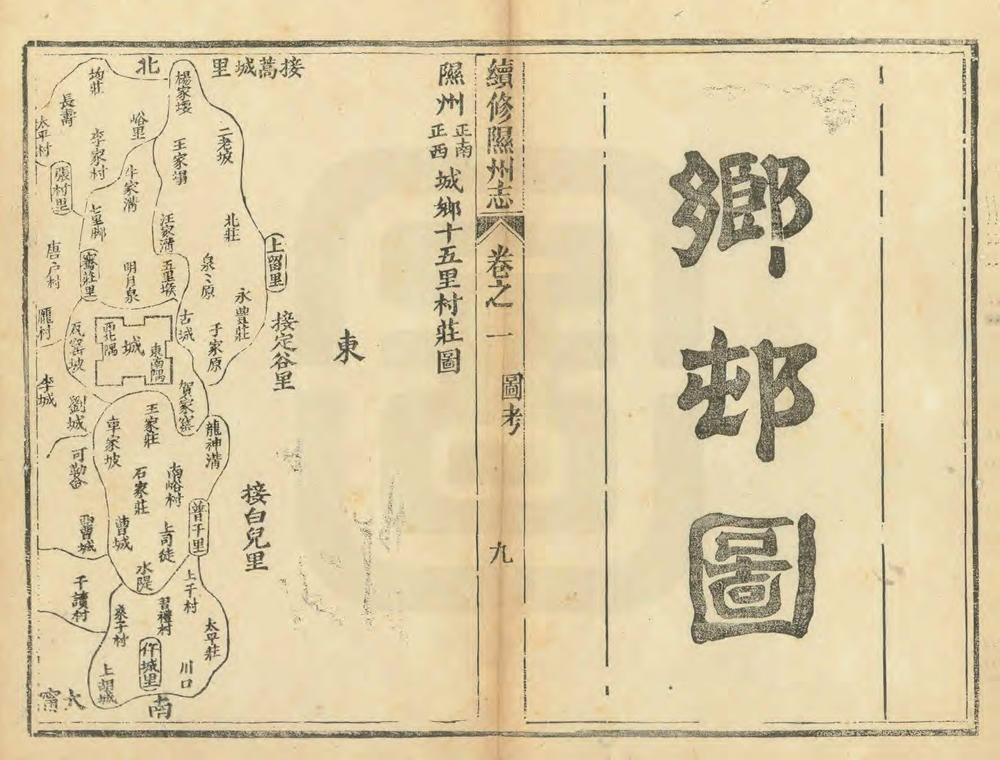 鄉邨圖
續修隰州志
卷之一
圖考
九
隰州正南正西城鄉十五里村莊圖
接蒿城里
北
東
南
接定谷里
接白兒里
大甯
楊家塿
二老坡
王家塌
北莊
上留里
泉々原
永豐莊
于家原
汪家溝
五里堠
古城
均莊
長壽
太平村
峪里
李家村
牛家溝
張村里
七里脚
唐户村
窰莊里
明月泉
龎村
瓦窑坡
西北隅
城
東南隅
李城
劉城
賀家窯
王家莊
車家坡
龍神溝
石家莊
南峪村
曹城
上司徒
普干里
水隄
上千村
習禮村
桑干村
太平莊
川口
仵城里
上胡城
千讀村